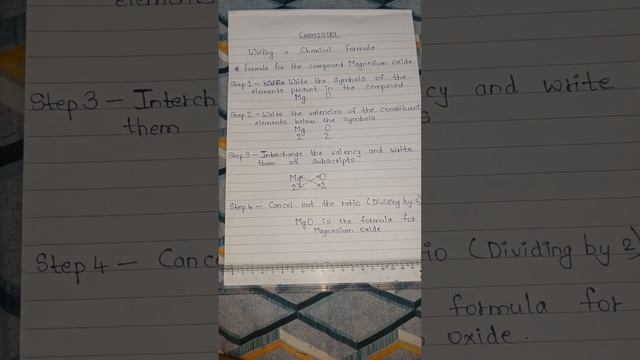 CHEMISTRY
Writing a Chemical Formula
* Formula for the compound Magnesium Oxide
Step 1 - Write the Symbols of the
elements present in the compound
Mg O
Step 2 - Write the valencies of the constituent
elements below the symbols
Mg O
2 2
Step 3 - Interchange the valency and write
them as subscripts
Mg O
2 2
Step 4 - Cancel out the ratio (Dividing by 2)
MgO is the formula for
Magnesium oxide
Step 3 - Interch
them
Step 4 - Canc
cy and write
io (Dividing by 2)
formula for
oxide.